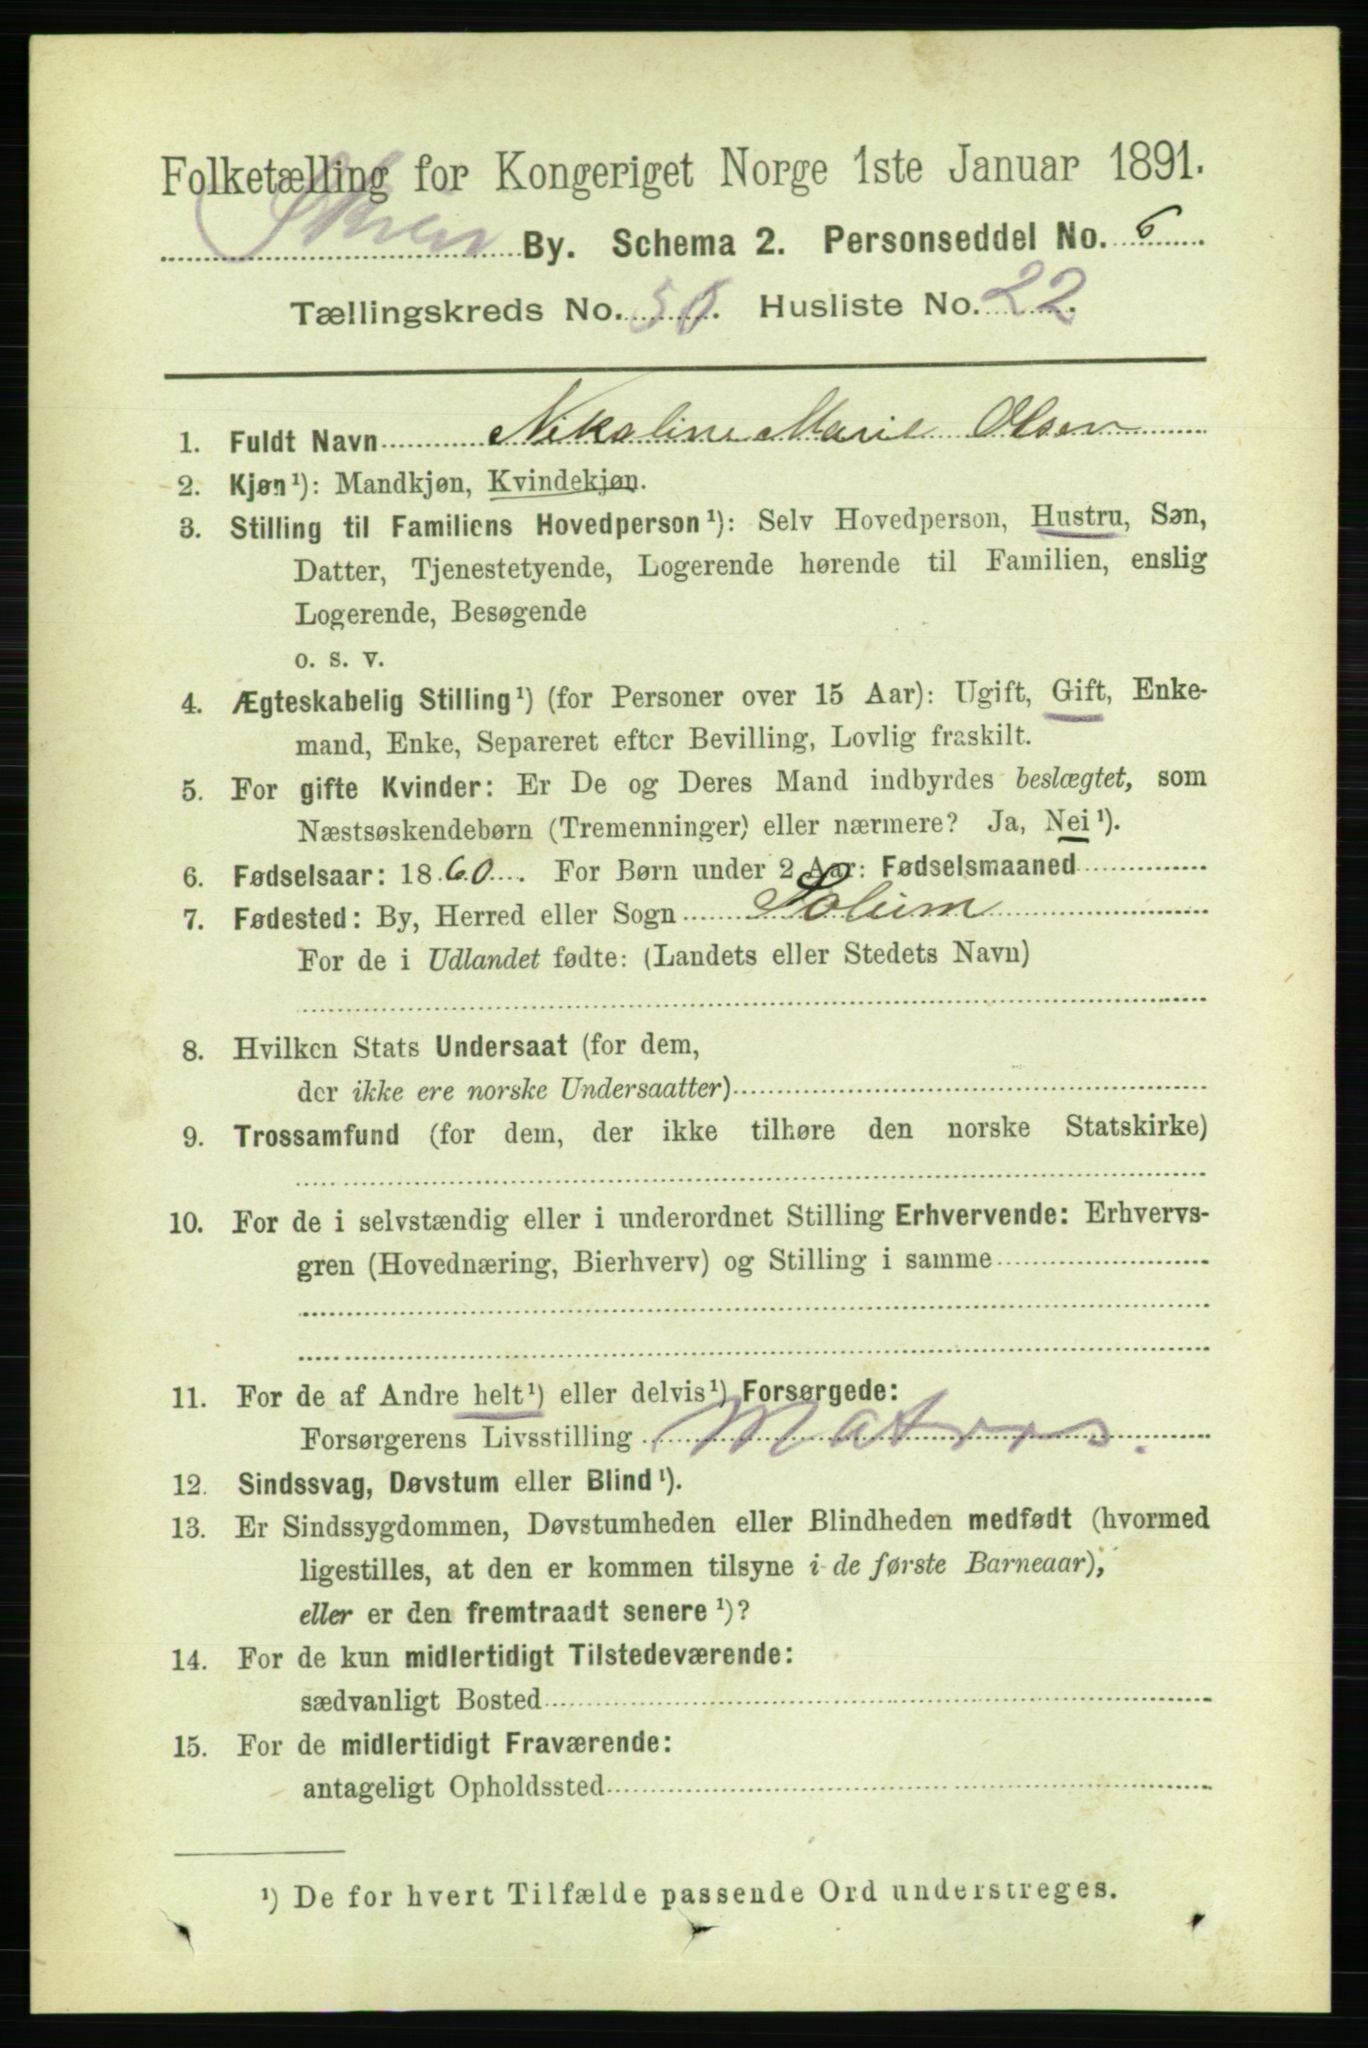 Folketælling for Kongeriget Norge 1ste Januar 1891.
Skien By. Schema 2. Personseddel No. 6
Tællingskreds No. 50. Husliste No. 22.
1. Fuldt Navn Nikoline Marie Olsen
2. Kjøn¹): Mandkjøn, Kvindekjøn.
3. Stilling til Familiens Hovedperson¹): Selv Hovedperson, Hustru, Søn,
Datter, Tjenestetyende, Logerende hørende til Familien, enslig
Logerende, Besøgende
o. s. v.
4. Ægteskabelig Stilling¹) (for Personer over 15 Aar): Ugift, Gift, Enke-
mand, Enke, Separeret efter Bevilling, Lovlig fraskilt.
5. For gifte Kvinder: Er De og Deres Mand indbyrdes beslægtet, som
Næstsøskendebørn (Tremenninger) eller nærmere? Ja, Nei¹).
6. Fødselsaar: 1860. For Børn under 2 Aar: Fødselsmaaned
7. Fødested: By, Herred eller Sogn Solum
For de i Udlandet fødte: (Landets eller Stedets Navn)
8. Hvilken Stats Undersaat (for dem,
der ikke ere norske Undersaatter)
9. Trossamfund (for dem, der ikke tilhøre den norske Statskirke)
10. For de i selvstændig eller i underordnet Stilling Erhvervende: Erhvervs-
gren (Hovednæring, Bierhverv) og Stilling i samme
11. For de af Andre helt¹) eller delvis¹) Forsørgede:
Forsørgerens Livsstilling Matros.
12. Sindssvag, Døvstum eller Blind¹).
13. Er Sindssygdommen, Døvstumheden eller Blindheden medfødt (hvormed
ligestilles, at den er kommen tilsyne i de første Barneaar),
eller er den fremtraadt senere¹)?
14. For de kun midlertidigt Tilstedeværende:
sædvanligt Bosted
15. For de midlertidigt Fraværende:
antageligt Opholdssted
¹) De for hvert Tilfælde passende Ord understreges.